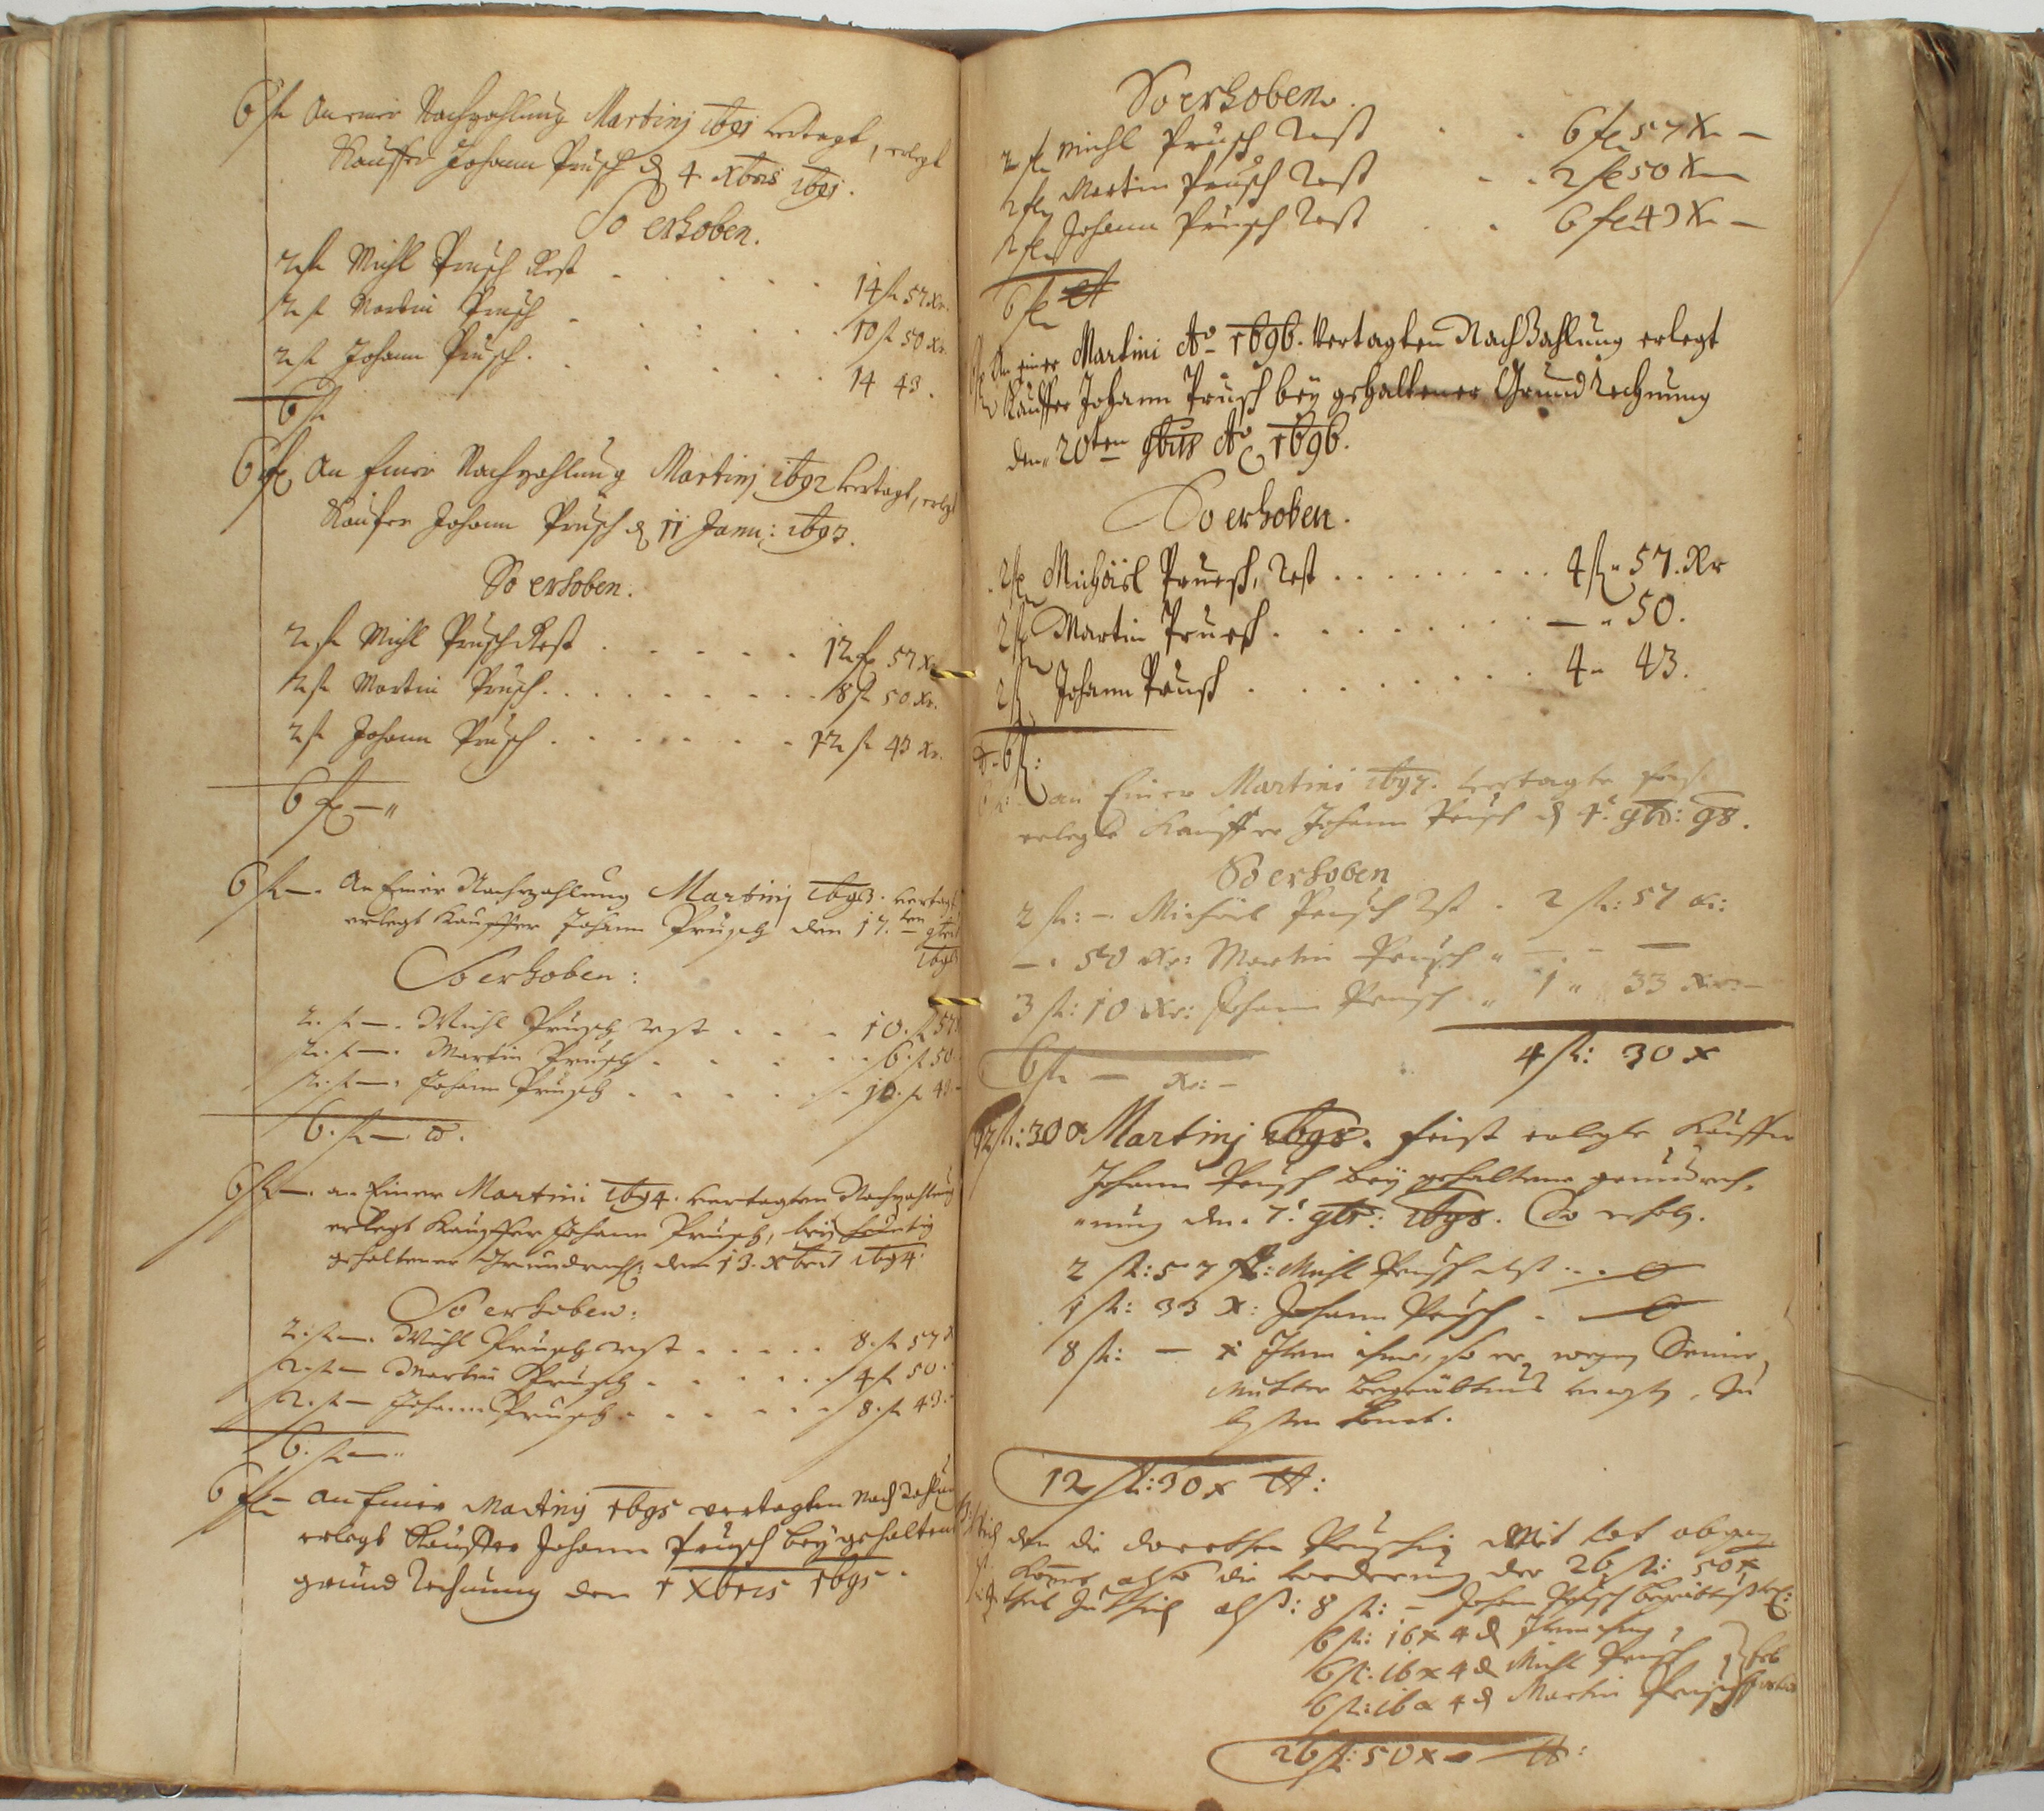 6 fl An einer Nachzahlung Martinj 1691 vertagt, erlegt
Kauffer Johann Prusch d 4 Xbris 1691.
So erhoben.
2 fl Michl Prusch Rest . . . . . 14 fl 57 Xr.
2 fl Martin Prusch . . . . . . 10 fl 50 Xr.
2 fl Johann Prusch . . . . . . 14 43.
6 fl
6 fl An Einer Nachzahlung Martinj 1692 vertagt, erlegt
Kaufer Johann Prusch d 11 Janu: 1693.
So erhoben.
2 fl Michl Prusch Rest . . . . . 12 fl 57 X
2 fl Martin Prusch . . . . . . . . 8 fl 50 Xr.
2 fl Johann Prusch . . . . . . . 12 fl 43 Xr.
6 fl — "
6 fl —. An Einer Nachzahlung Martinj 1693. vertagt
erlegt Kauffer Johann Prusch den 17.ten 9bris
1693
So erhoben:
2. fl —. Michl Prusch rest . . . 10. fl 57
2. fl —. Martin Prusch . . . . . 6. fl 50
2. fl —. Johann Prusch . . . . . 10. fl 43
6. fl —.
6 fl —. an Einer Martini 1694. vertagten Nachzahlung
erlegt Kauffer Johann Prusch, bey heuttig
gehaltener Grundrech: den 13. Xbris 1694.
So erhoben:
2. fl —. Michl Prusch rest . . . . . 8. fl 57 X
2. fl — Martin Prusch . . . . . . 4 fl 50.
2. fl — Johann Prusch . . . . . . 8. fl 43.
6. fl —"
6 fl — An Einer Martinj 1695 vertagten Nachzahlung
erlegt Kauffer Johann Prusch bey gehaltener
grund Rechnung den 1 Xbris 1695.
So erhoben.
2 fl Michl Prusch Rest . . 6 fl 57 Xr —
2 fl Martin Prusch Rest . . 2 fl 50 Xr —
2 fl Johann Prusch Rest . . 6 fl 43 Xr —
6 fl
An einer Martini Ao 1696. Vertagten Nachzahlung erlegt
Kauffer Johann Prusch bey gehaltener Grund Rechnung
den 20ten 9bris Ao 1696.
So erhoben.
2 fl Michael Prusch, Rest . . . . . . . . . 4 fl " 57. Xr
2 fl Martin Prusch . . . . . . . . — " 50.
2 fl Johann Prusch . . . . . . . . . 4 " 43.
6 fl:
an Einer Martini 1697. vertagte frist
erlegte Kauffer Johann Prusch d 4. 9br: 98.
So erhoben
2 fl: —. Michael Prusch Rst . 2 fl: 57 Xr:
—. 50 Xr: Martin Prusch " — . — —
3 fl: 10 Xr: Johann Prusch " 1 " 33 Xr: —
4 fl: 30 X
6 fl — Xr: —
12 fl: 30 X Martinj 1698. frist erlegte Kauffer
Johann Prusch bey gehaltene grundrech,
"nung den. 7. 9br: 1698. So erhob.
2 fl: 57 X: Michl Prusch rest . . . 0
1 fl: 33 X: Johann Prusch . . 0
8 fl: — X Item ihme, so er wegen Seiner
Mutter begräbtnus
12 fl: 30 X
die Dorothea Pruschin Mit tot abgang
Kommt also die forderung der 26 fl: 50 X
theil alß: 8 fl: — Johann Prusch begräbnuß
6 fl: 16 X 4 d
6 fl: 16 X 4 d Michl Prusch
6 fl: 16 X 4 d Martin Prusch
26 fl: 50 X —